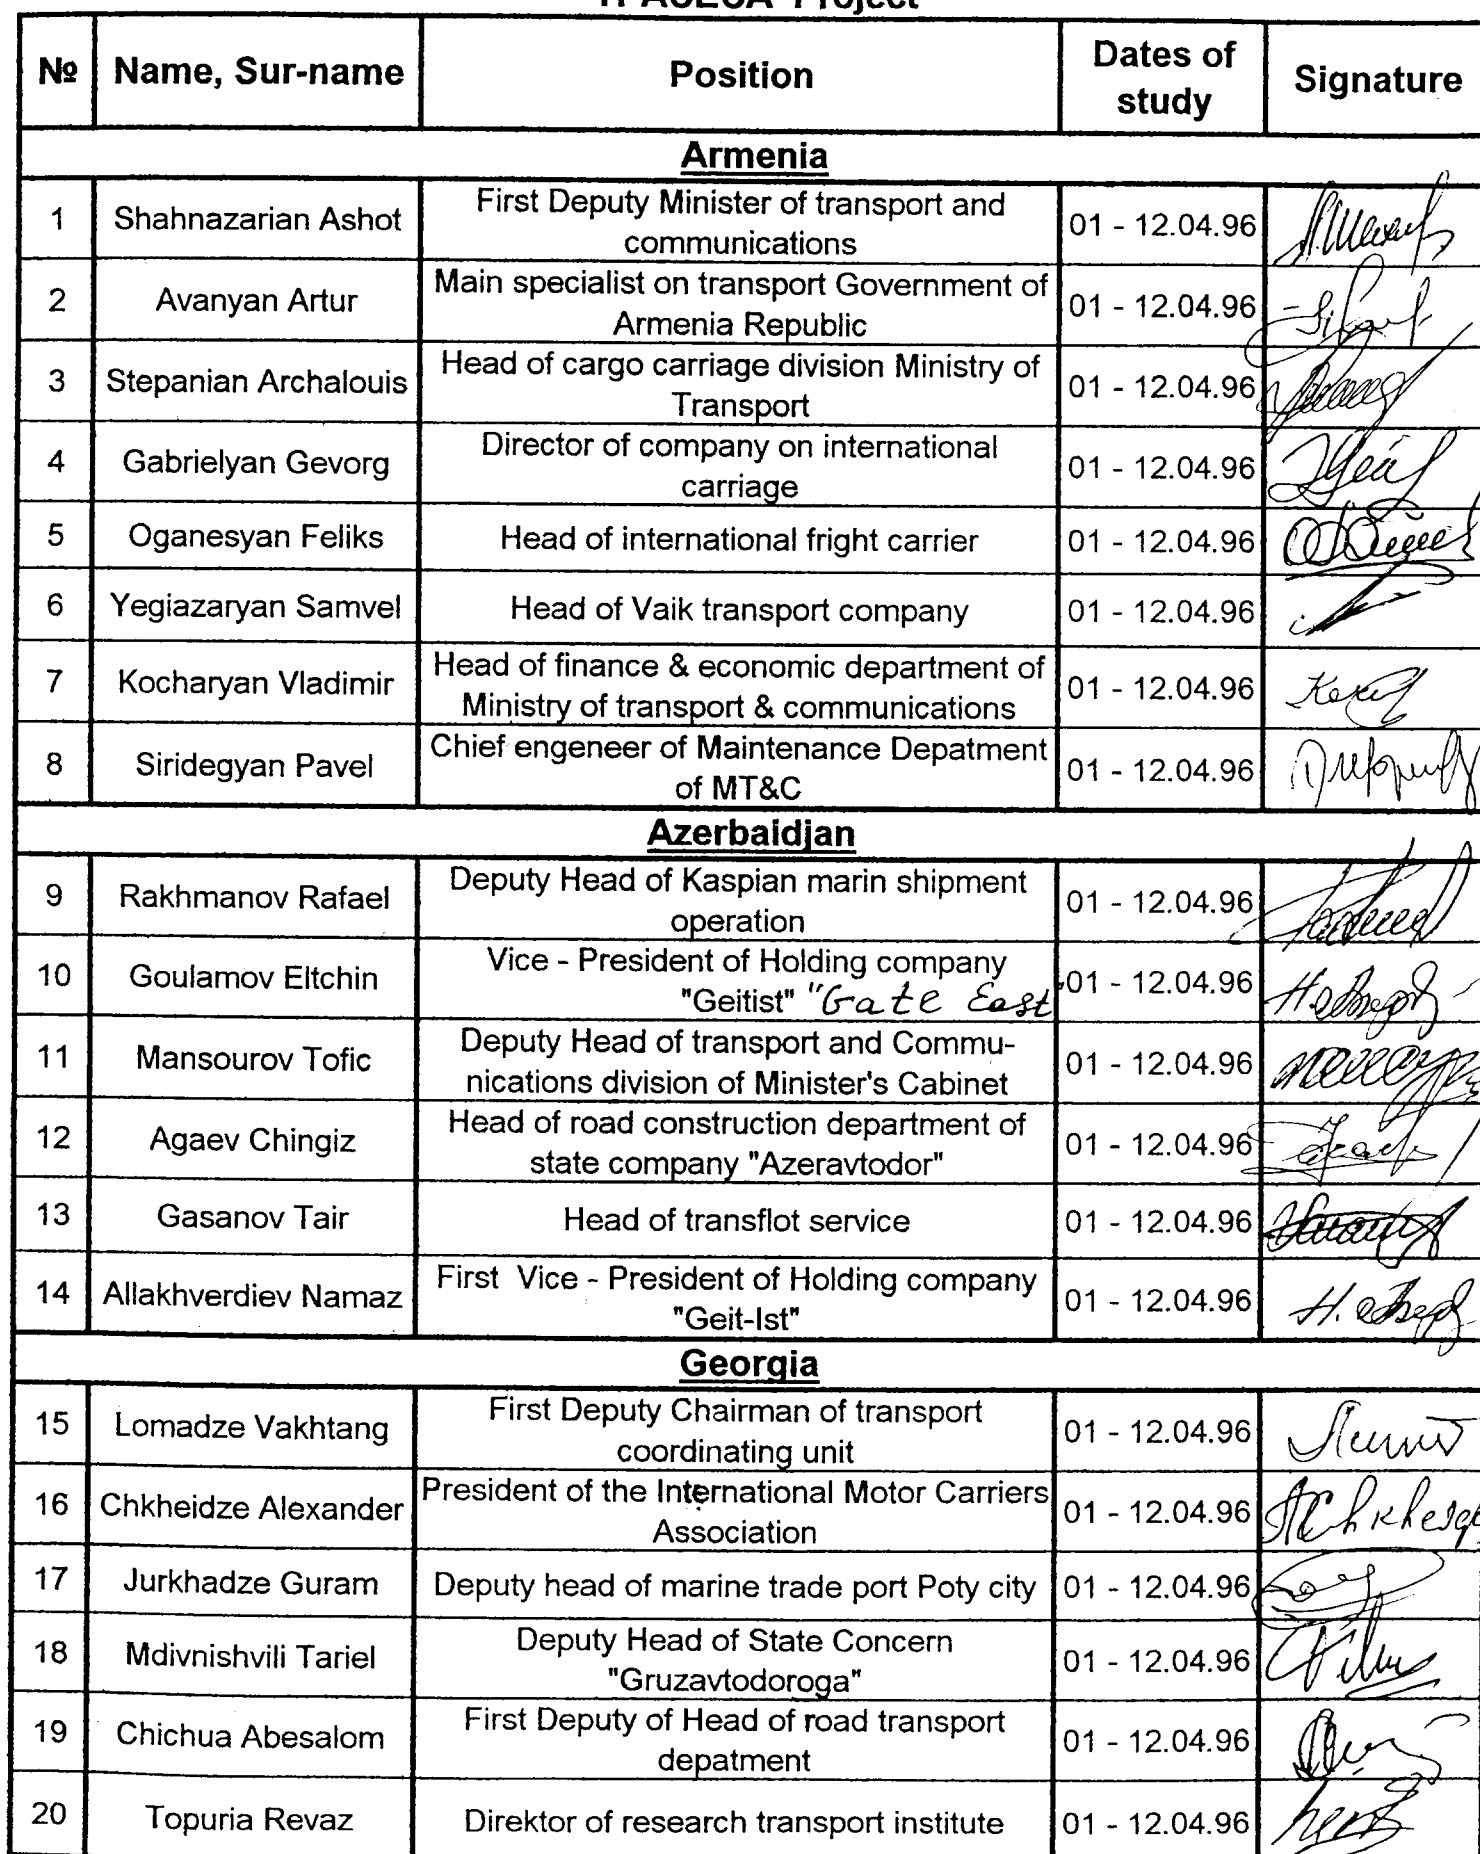 Project
№ Name, Sur-name Position Dates of study Signature
Armenia
1 Shahnazarian Ashot First Deputy Minister of transport and communications 01 - 12.04.96
2 Avanyan Artur Main specialist on transport Government of Armenia Republic 01 - 12.04.96
3 Stepanian Archalouis Head of cargo carriage division Ministry of Transport 01 - 12.04.96
4 Gabrielyan Gevorg Director of company on international carriage 01 - 12.04.96
5 Oganesyan Feliks Head of international fright carrier 01 - 12.04.96
6 Yegiazaryan Samvel Head of Vaik transport company 01 - 12.04.96
7 Kocharyan Vladimir Head of finance & economic department of Ministry of transport & communications 01 - 12.04.96
8 Siridegyan Pavel Chief engeneer of Maintenance Depatment of MT&C 01 - 12.04.96
Azerbaidjan
9 Rakhmanov Rafael Deputy Head of Kaspian marin shipment operation 01 - 12.04.96
10 Goulamov Eltchin Vice - President of Holding company "Geitist" "Gate East" 01 - 12.04.96
11 Mansourov Tofic Deputy Head of transport and Commu-nications division of Minister's Cabinet 01 - 12.04.96
12 Agaev Chingiz Head of road construction department of state company "Azeravtodor" 01 - 12.04.96
13 Gasanov Tair Head of transflot service 01 - 12.04.96
14 Allakhverdiev Namaz First Vice - President of Holding company "Geit-Ist" 01 - 12.04.96
Georgia
15 Lomadze Vakhtang First Deputy Chairman of transport coordinating unit 01 - 12.04.96
16 Chkheidze Alexander President of the International Motor Carriers Association 01 - 12.04.96
17 Jurkhadze Guram Deputy head of marine trade port Poty city 01 - 12.04.96
18 Mdivnishvili Tariel Deputy Head of State Concern "Gruzavtodoroga" 01 - 12.04.96
19 Chichua Abesalom First Deputy of Head of road transport depatment 01 - 12.04.96
20 Topuria Revaz Direktor of research transport institute 01 - 12.04.96